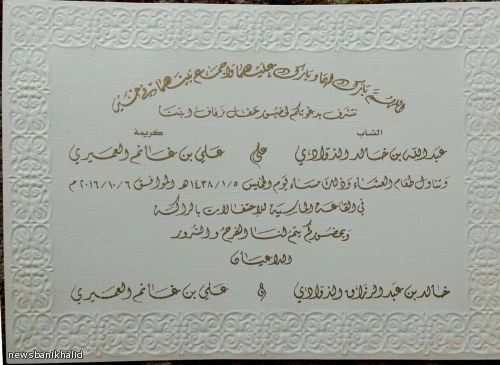 اللهم بارك لهما وبارك عليهما واجمع بينهما في خير
نتشرف بدعوتكم لحضور حفل زفاف ابننا
الشاب
كريمة
عبدالله بن خالد الذوادي على علي بن غانم العميري
وتناول طعام العشاء وذلك مساء يوم الخميس ١٤٣٨/١/٥هـ الموافق ٢٠١٦/١٠/٦م
في القاعة الماسية للاحتفالات بالراكة
وبحضوركم يتم لنا الفرح والسرور
الداعيان
خالد بن عبدالرزاق الذوادي & علي بن غانم العميري
newsbanikhalid